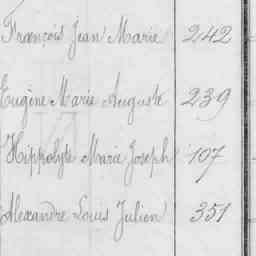 François Jean Marie 242
Eugène Marie Auguste 239
Hippolyte Marie Joseph 107
Alexandre Louis Julien 351